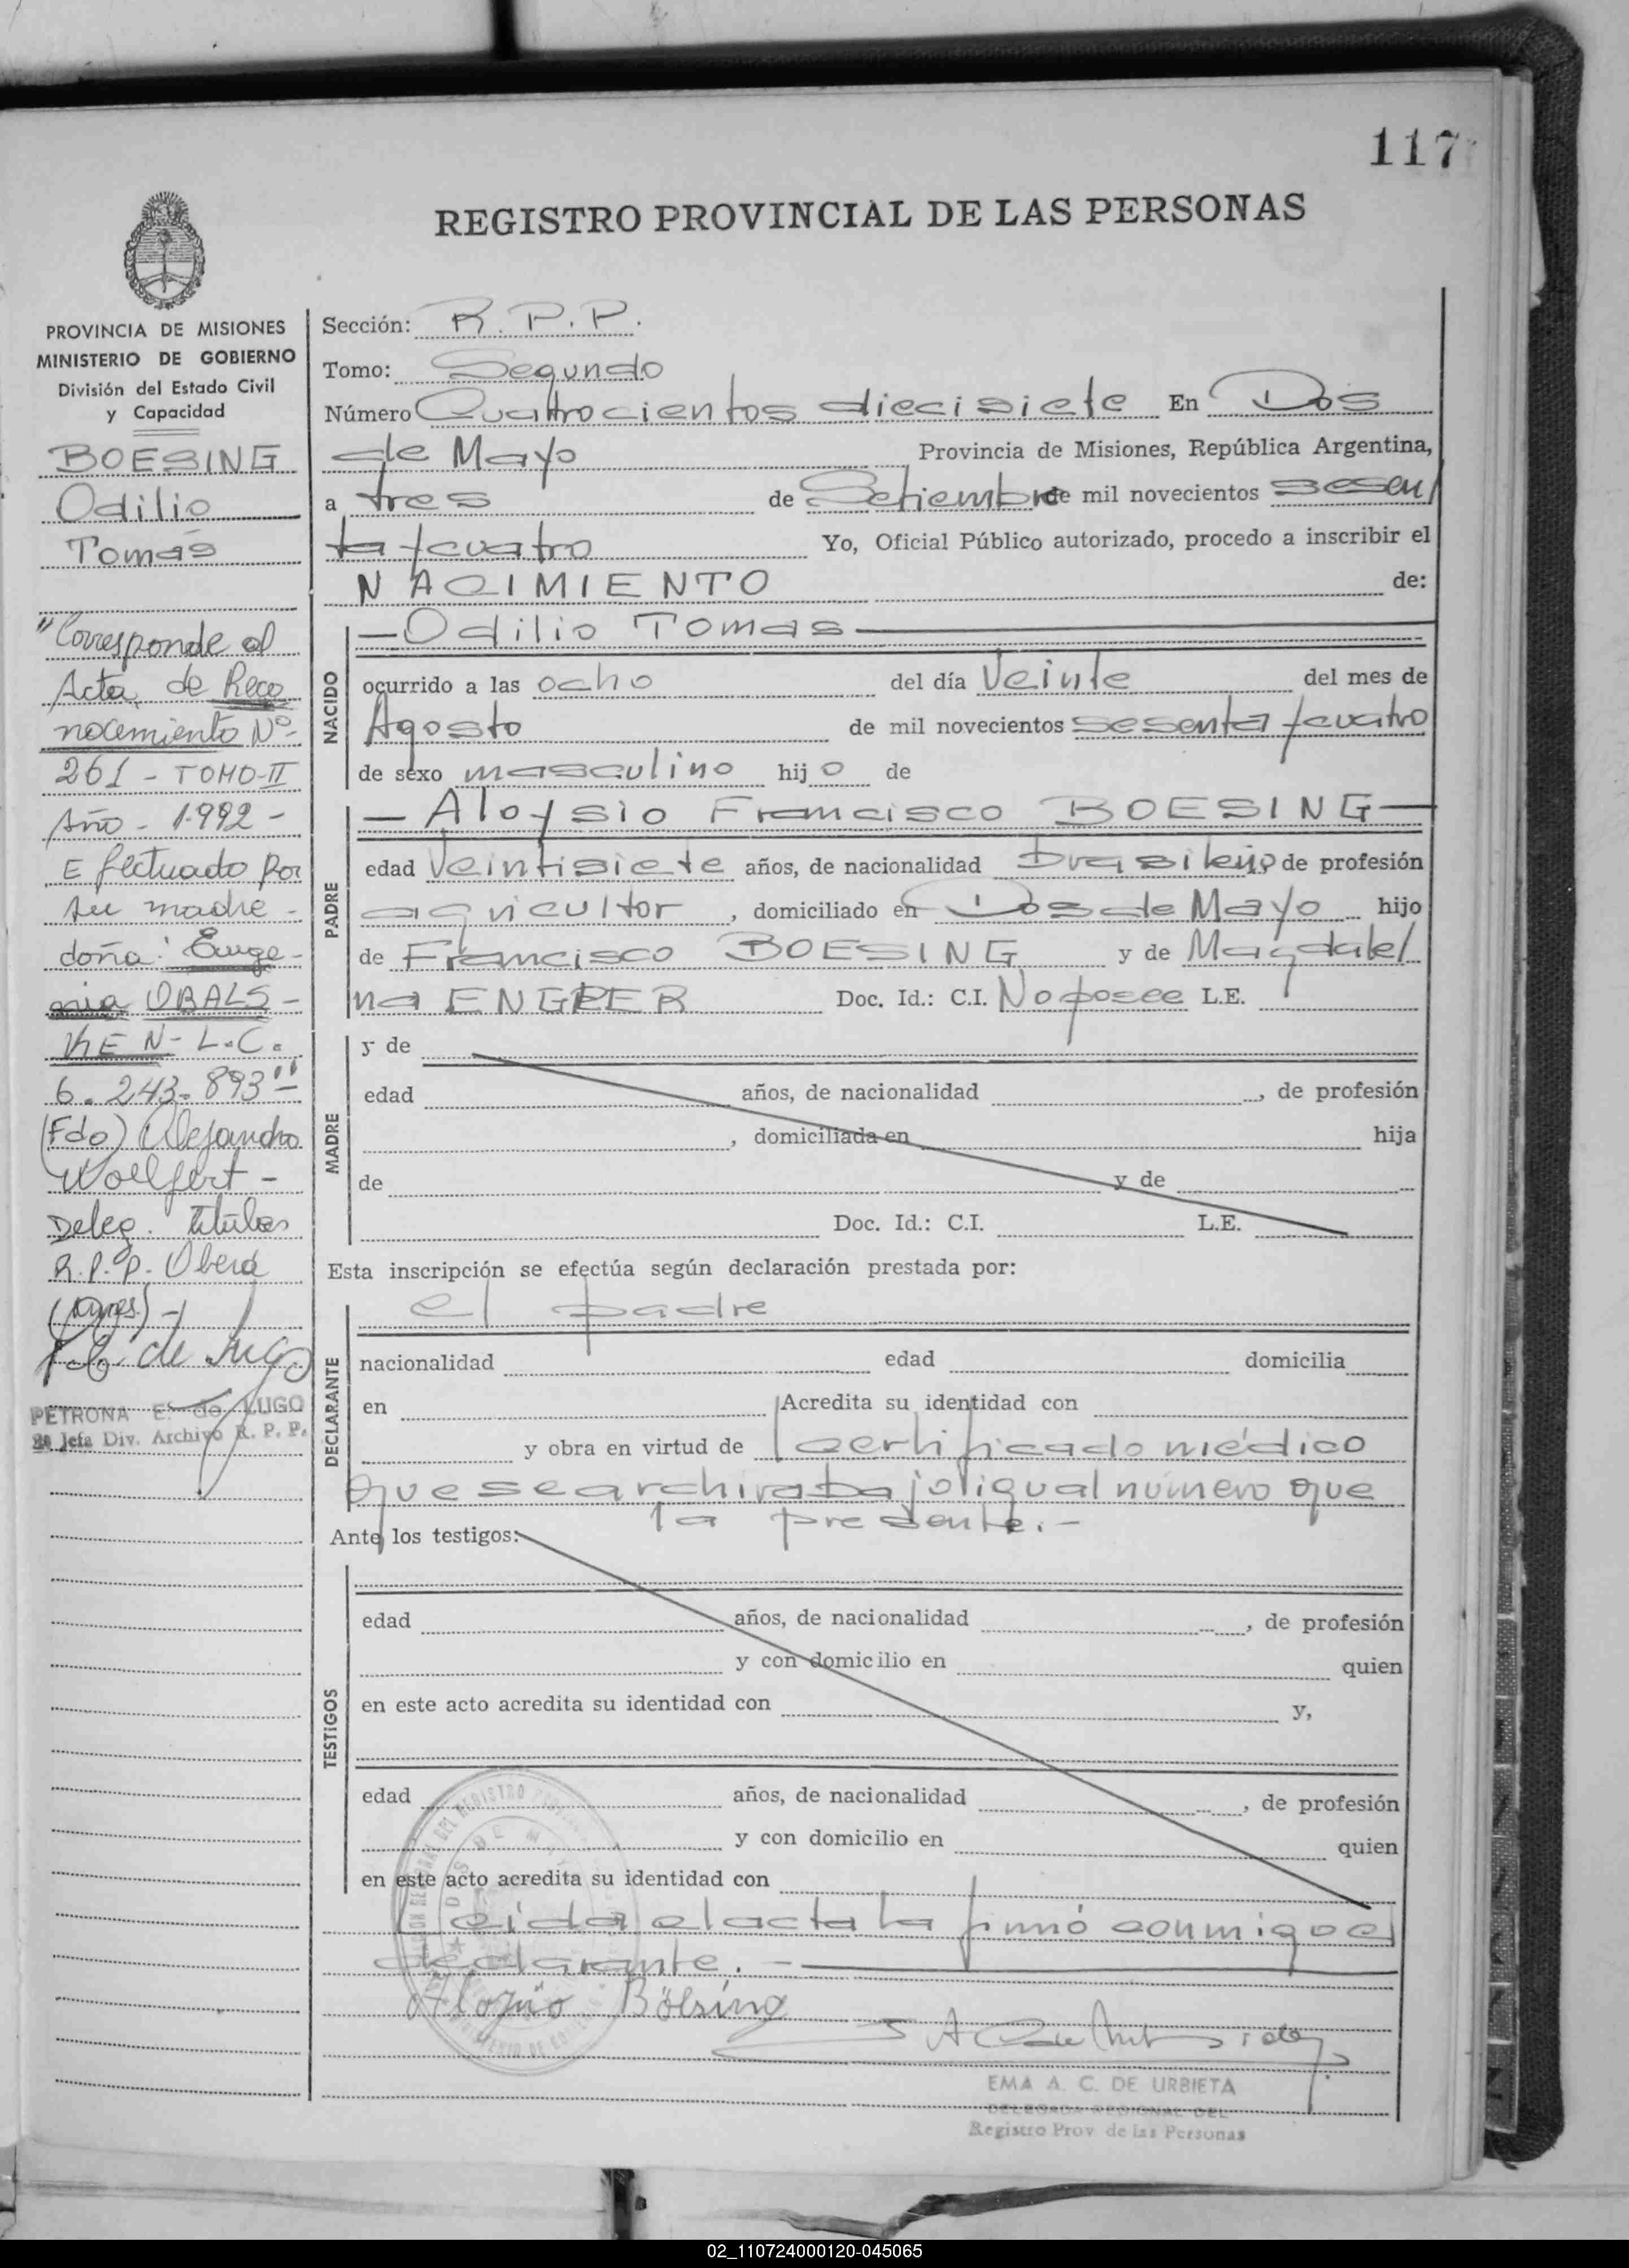 117
REGISTRO PROVINCIAL DE LAS PERSONAS
PROVINCIA DE MISIONES
MINISTERIO DE GOBIERNO
División del Estado Civil
y Capacidad
BOESING
Odilio
Tomás
"Corresponde al
Acta de Reco
nocimiento Nº-
261 - TOMO-II
Año - 1.992 -
Efectuado por
su madre -
doña: Euge-
nia UBALS-
KEN- L.C.
6.243.893"
(Fdo) Alejandro
Wollfert -
Deleg. titular
R.P.P. Oberá
PETRONA E. de LUGO
Jefa Div. Archivo R. P. P.
Sección: R. P. P.
Tomo: Segundo
Número Cuatrocientos diecisiete En Dos
de Mayo Provincia de Misiones, República Argentina,
a tres de Setiembre de mil novecientos sesen/
ta y cuatro Yo, Oficial Público autorizado, procedo a inscribir el
NACIMIENTO de:
NACIDO
—Odilio Tomas—
ocurrido a las ocho del día Veinte del mes de
Agosto de mil novecientos sesenta y cuatro
de sexo masculino hijo de
PADRE
— Aloysio Francisco BOESING—
edad Veintisiete años, de nacionalidad brasileño de profesión
agricultor, domiciliado en Dos de Mayo hijo
de Francisco BOESING y de Magdale/
na ENGRER Doc. Id.: C.I. No posee L.E.
MADRE
y de
edad años, de nacionalidad , de profesión
, domiciliada en hija
de y de
Doc. Id.: C.I. L.E.
Esta inscripción se efectúa según declaración prestada por:
DECLARANTE
el padre
nacionalidad edad domicilia
en Acredita su identidad con
y obra en virtud de certificado médico
que se archiva bajo igual número que
la presente.-
Ante los testigos:
TESTIGOS
edad años, de nacionalidad , de profesión
y con domicilio en quien
en este acto acredita su identidad con y,
edad años, de nacionalidad , de profesión
y con domicilio en quien
en este acto acredita su identidad con
Leida el acta la firmó conmigo el
declarante. -
Aloysio Böesing
EMA A. C. DE URBIETA
DELEGADA REGIONAL DEL
Registro Prov. de las Personas
02_110724000120-045065